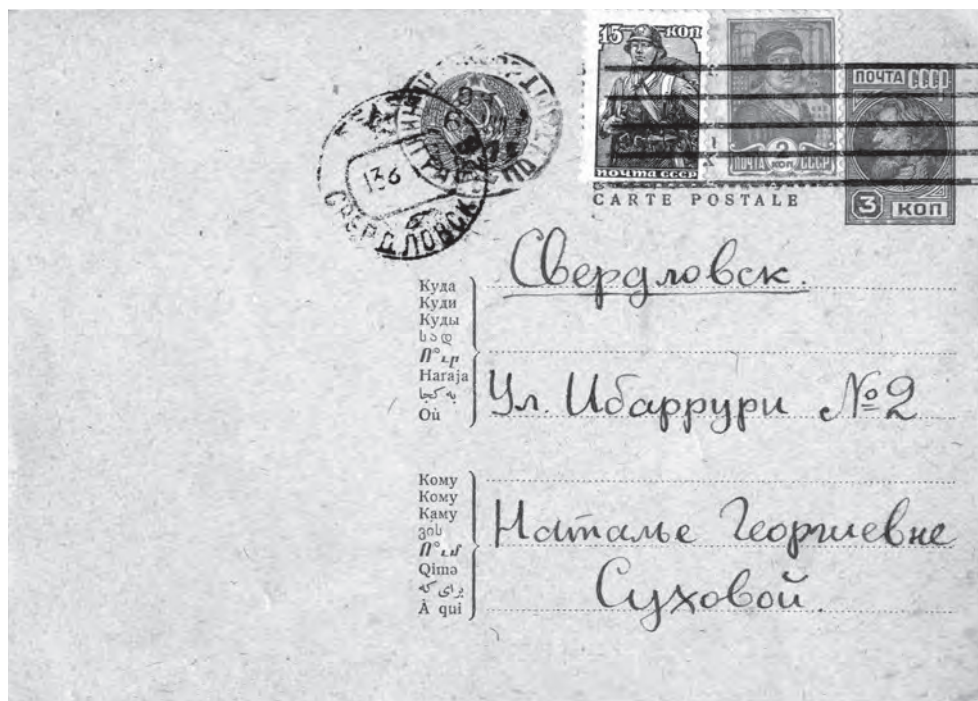 15 КОП
ПОЧТА СССР
ПОЧТА 2 КОП СССР
ПОЧТА СССР
3 КОП
CARTE POSTALE
СВЕРДЛОВСК
136
Куда
Куди
Куды
სად
Ո՞ւր
Haraja
به کجا
Où
Свердловск.
Ул. Ибаррури №2
Кому
Кому
Каму
ვის
Ո՞ւմ
Qimə
برای که
À qui
Наталье Георгиевне
Суховой.